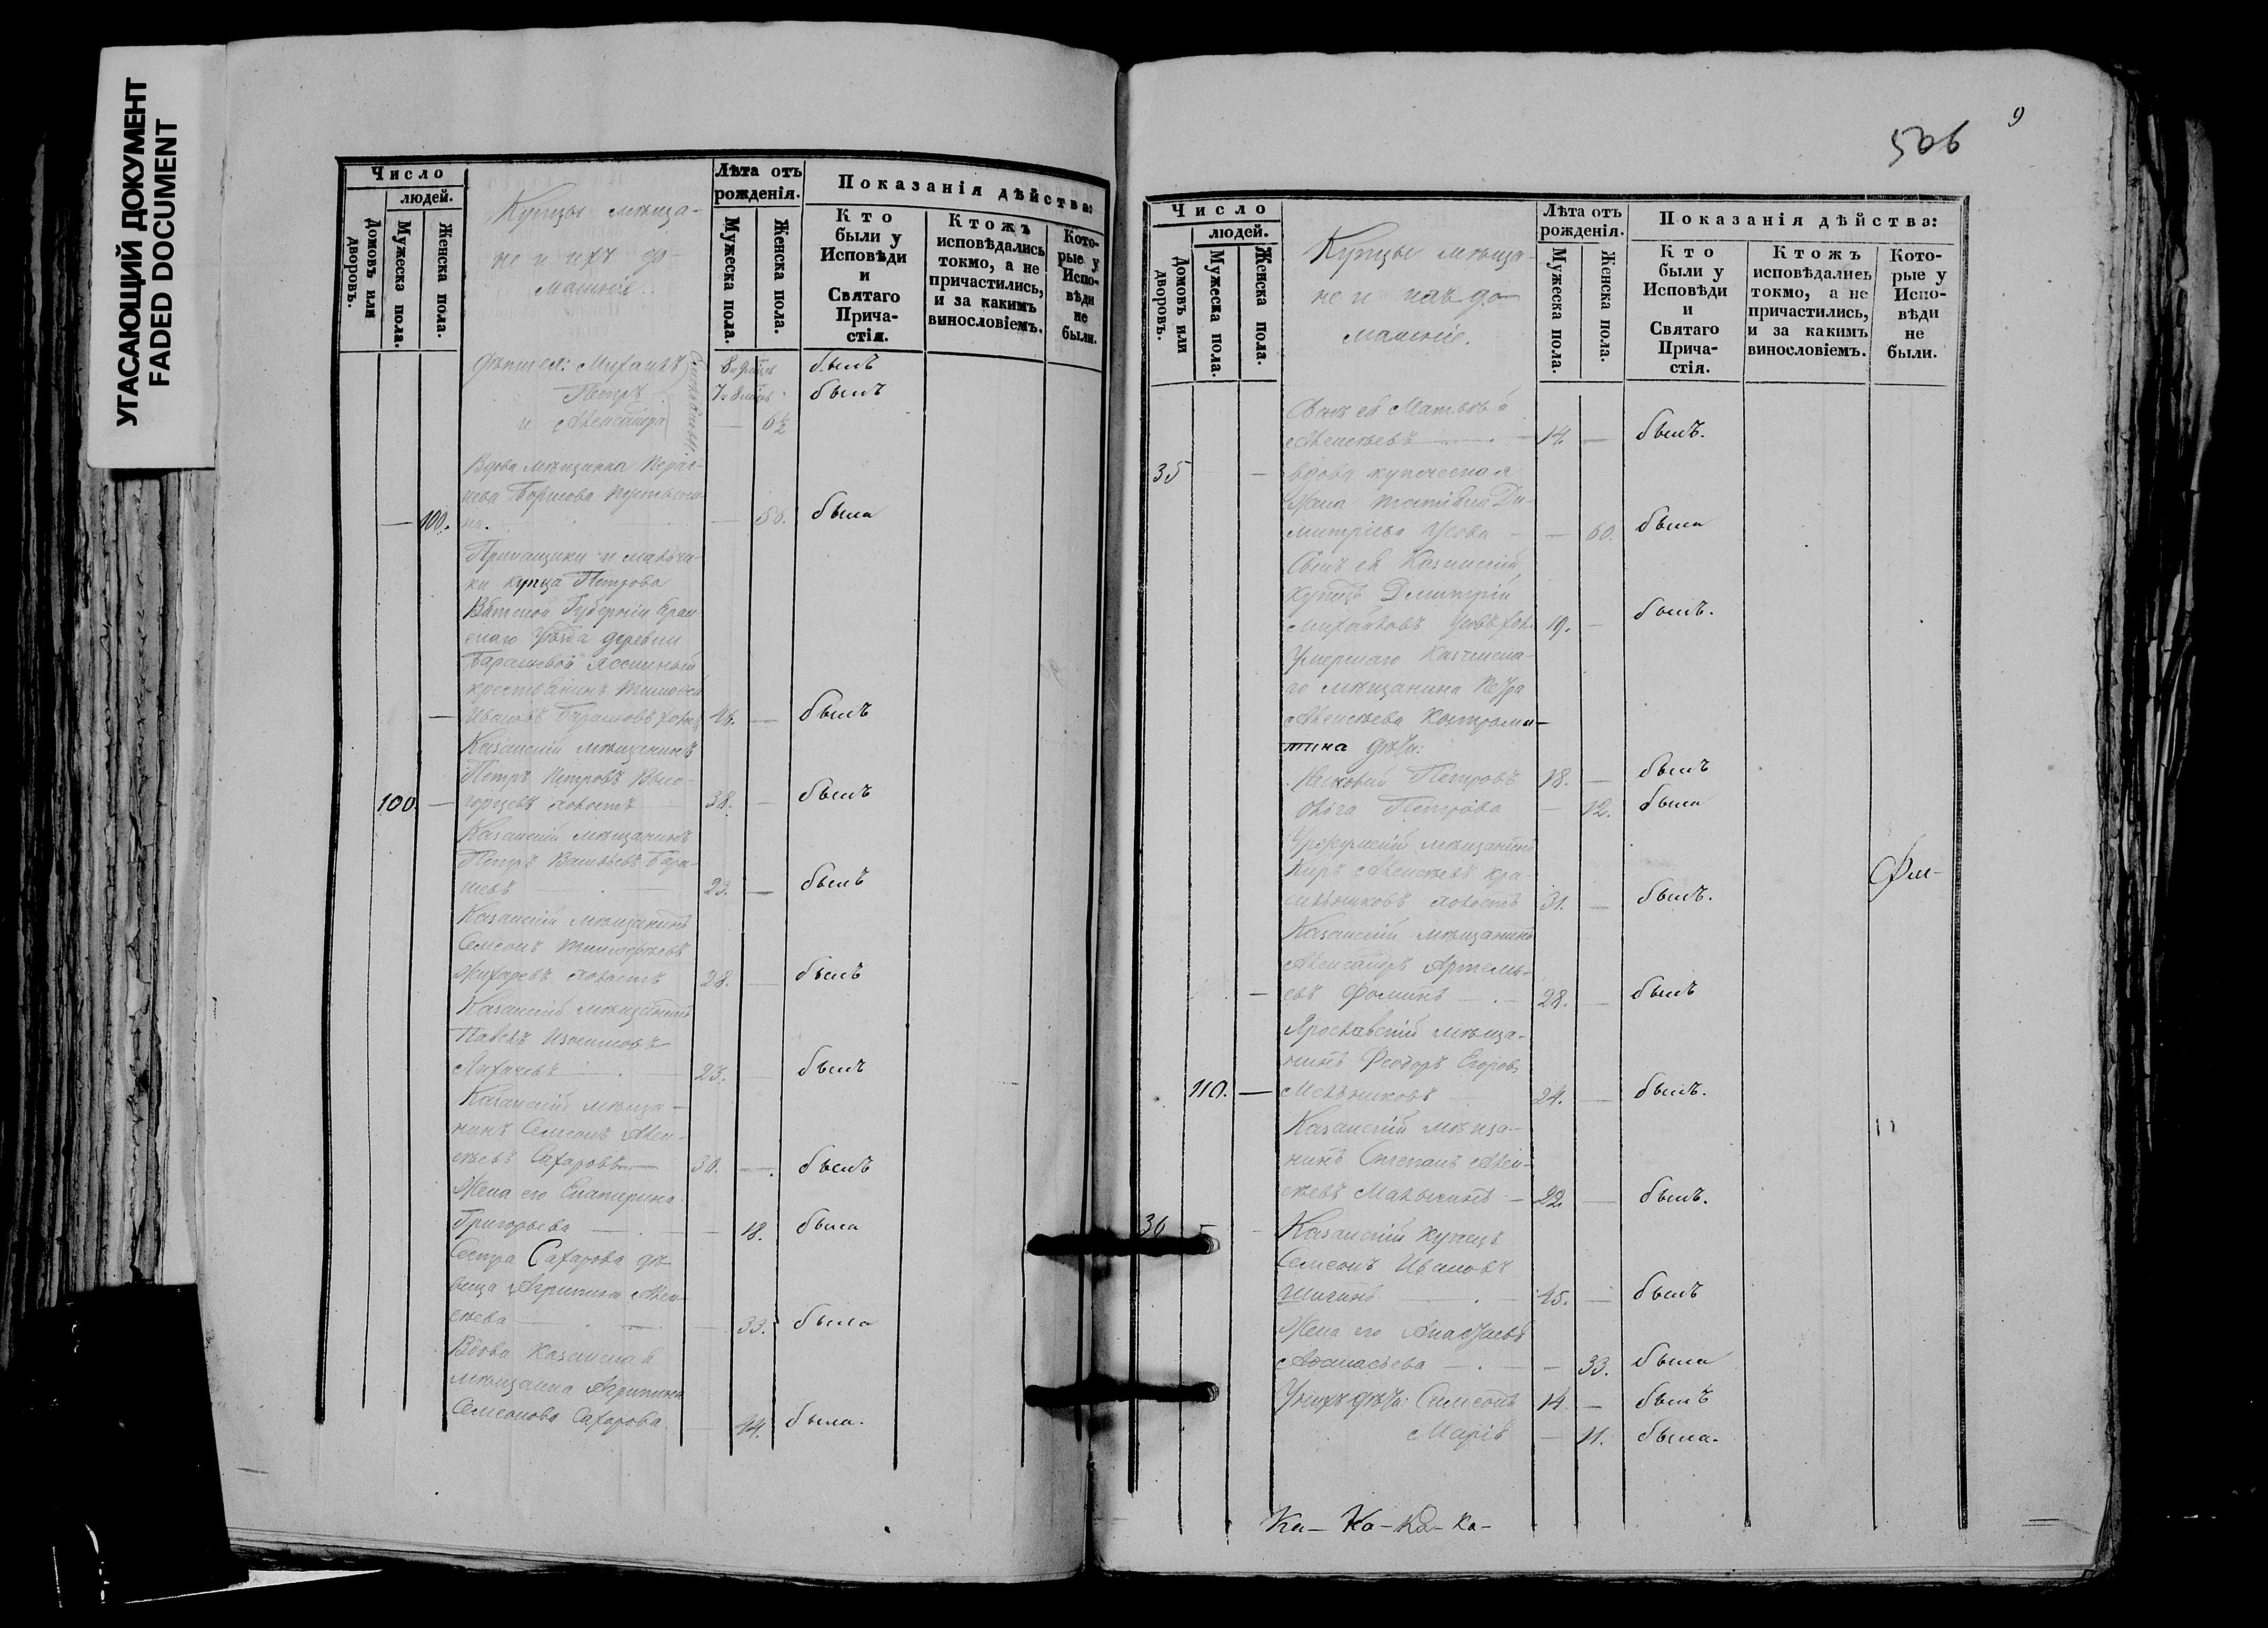 УГАСАЮЩИЙ ДОКУМЕНТ
FADED DOCUMENT
Число
людей.
Домовъ или дворовъ.
Мужеска пола.
Женска пола.
Купцы мѣща-
не и ихъ до-
машніе.
Лѣта отъ рожденія.
Мужеска пола.
Женска пола.
Показанія дѣйства:
Кто были у Исповѣди и Святаго Прича-стія.
Ктожъ исповѣдались токмо, а не причастились, и за какимъ винословіемъ.
Кото-рые у Испо-вѣди не были.
Михаилъ 8 былъ
Петръ былъ
и Александра 6½
Вдова мѣщанка
Борисова
100. былa
Прикащики и мальчи-
ки купца Петрова
Вятской Губерніи Яран-
скаго Уѣзда деревни
Барашевой ясашный
крестьянинъ Тимофей
Ивановъ 46. былъ
Казанскій мѣщанинъ
Петръ Петровъ Выго-
100 холостъ 38. былъ
Казанскій мѣщанинъ
Петръ Васильевъ Бара-
шевъ 23. былъ
Казанскій мѣщанинъ
Семенъ Тимофеевъ
Жихаревъ холостъ 28. былъ
Казанскій мѣщанинъ
Павелъ
Лихачевъ 23. былъ
Казанскій мѣща-
нинъ Семенъ Алек-
сѣевъ Сахаровъ 30. былъ
Жена его Екатерина
Григорьева 18. была
Сестра Сахарова дѣ-
вица Агрипина Алек-
сѣева 33. была
Вдова Казанская
мѣщанка Агрипина
Семенова Сахарова 44. была.
9
506
Число
людей.
Домовъ или дворовъ.
Мужеска пола.
Женска пола.
Купцы мѣща-
не и ихъ до-
машніе.
Лѣта отъ рожденія.
Мужеска пола.
Женска пола.
Показанія дѣйства:
Кто были у Исповѣди и Святаго Прича-стія.
Ктожъ исповѣдались токмо, а не причастились, и за какимъ винословіемъ.
Кото-рые у Испо-вѣди не были.
Сынъ ея Матвей
Алексѣевъ 14. былъ.
35 Вдова купеческая
жена Татіана Ди-
митріева Усова 60. была
Сынъ ея Казанскій
Купецъ Димитрій
Михайловъ Усовъ 19. былъ.
Умершаго Казанска-
го мѣщанина Петра
Алексѣева Костроми-
тина дѣти:
Петровъ 18. былъ
Ольга Петрова 12. была
Уржумскій мѣщанинъ
Киръ Алексѣевъ Кра-
сильниковъ холостъ 31. былъ.
Казанскій мѣщанинъ
Александръ Артемь-
евъ Фоминъ 28. былъ
Ярославскій мѣща-
нинъ Феодоръ Егоровъ
110. Мельниковъ 24. былъ.
Казанскій мѣща-
нинъ Степанъ Алек-
сѣевъ 22. былъ.
36 Казанскій Купецъ
Семенъ Ивановъ
Шигинъ 45. былъ
Жена его Анастасія
Афанасьева 33. была
У нихъ дѣти: Симеонъ 14. былъ
Марія 11. была.
Ка- Ка- Ка- Ка-